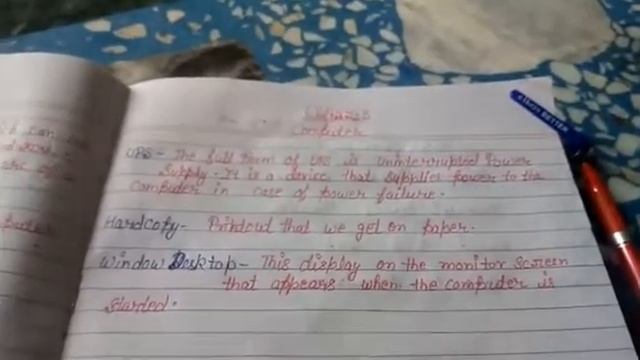 Computer
UPS - The full form of UPS is Uninterrupted Power
Supply. It is a device that supplies power to the
Computer in case of power failure.
Hardcofy- Printdout that we get on paper.
Window Desktop - This display on the monitor screen
that appears when the computer is
Started.
BETTER